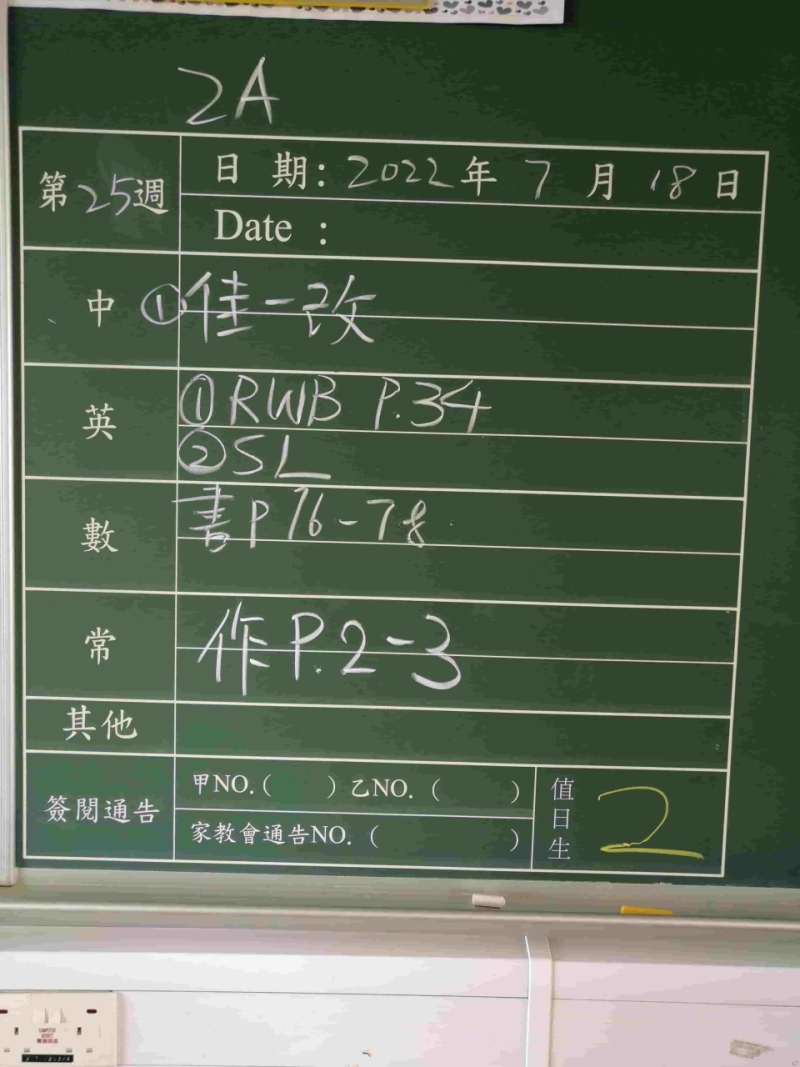 2A
第25週 日 期：2022年 7 月 18 日
Date ：
中 ①佳一改
英 ①RWB P.34
②SL
數 書P 76-78
常 作P.2-3
其他
簽閱通告 甲NO.( ) 乙NO.( )
家教會通告NO.( )
值日生 2